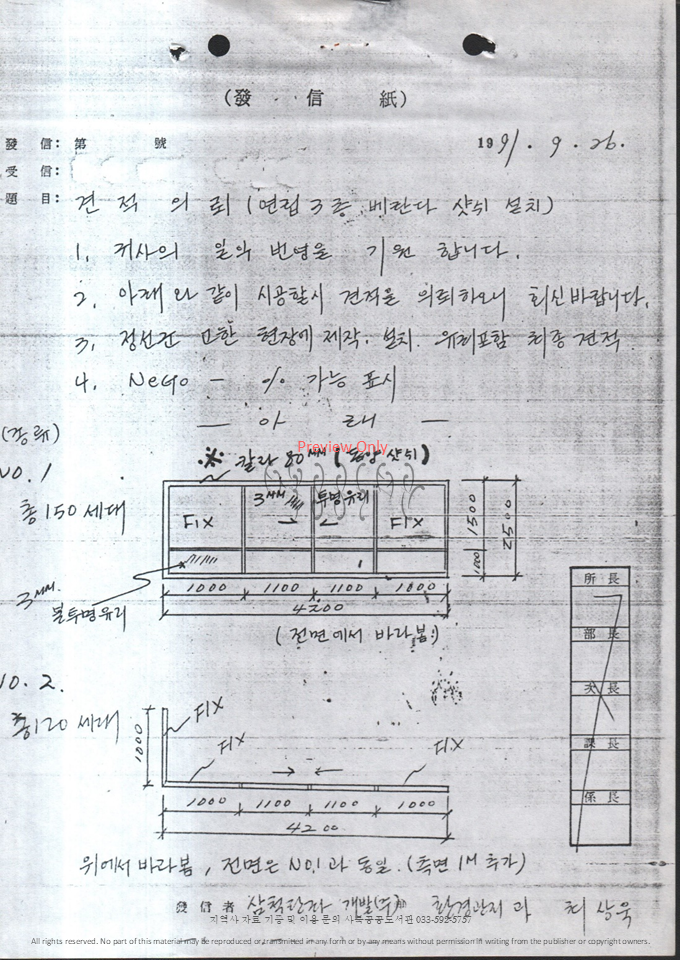 (發 信 紙)
發 信: 第 號
1991. 9. 26.
受 信:
題 目: 견적의뢰 (연립 3층 베란다 샷쉬 설치)
1. 귀사의 일익 번영을 기원 합니다.
2. 아래와 같이 시공할시 견적을 의뢰하오니 회신바랍니다.
3. 정선군 고한 현장에 제작, 설치. 유리포함 최종 견적
4. NeGo - % 가능 표시
— 아 래 —
(종류)
Preview Only
※ 칼라 80mm (동양 샷쉬)
NO. 1
총 150 세대
3mm 투명유리
FIX
FIX
1500
1000
2500
3mm.
불투명유리
1000 1100 1100 1000
4200
(전면에서 바라봄)
NO. 2.
총 120 세대
FIX
FIX
FIX
1000
1000 1100 1100 1000
4200
위에서 바라봄, 전면은 NO.1과 동일. (측면 1M 추가)
所 長
部 長
次 長
課 長
係 長
發 信 者 삼척탄좌 개발(주) 환경관리과 최상욱
지역사 자료 기증 및 이용 문의 사북공공도서관 033-592-5757
All rights reserved. No part of this material may be reproduced or transmitted in any form or by any means without permission in writing from the publisher or copyright owners.